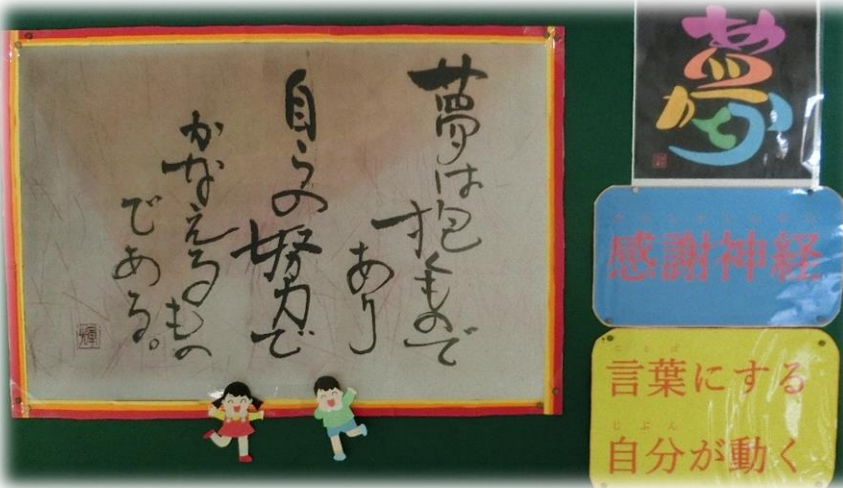 夢は抱くもので
あり
自らの努力で
かなえるもの
である。
夢
感謝神経
ことば
言葉にする
じぶん
自分が動く